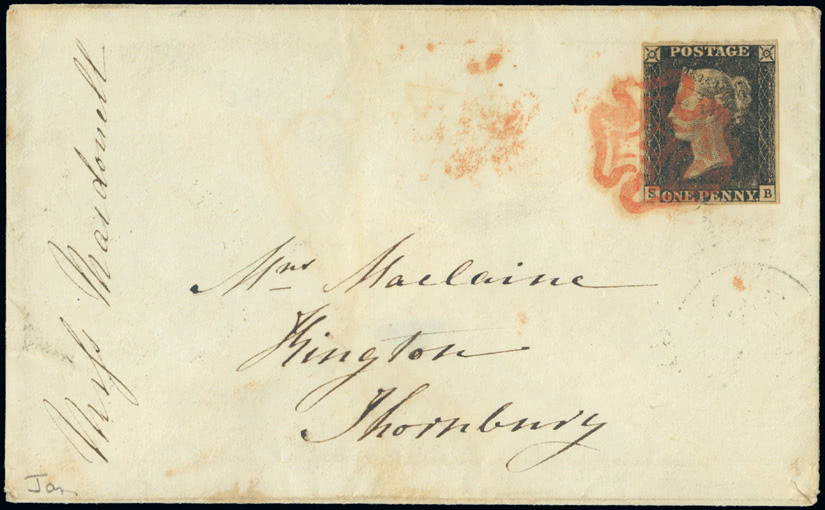 POSTAGE
S ONE PENNY. B
Miss Macdonell
Mrs Maclaine
Kington
Thornbury
Jan